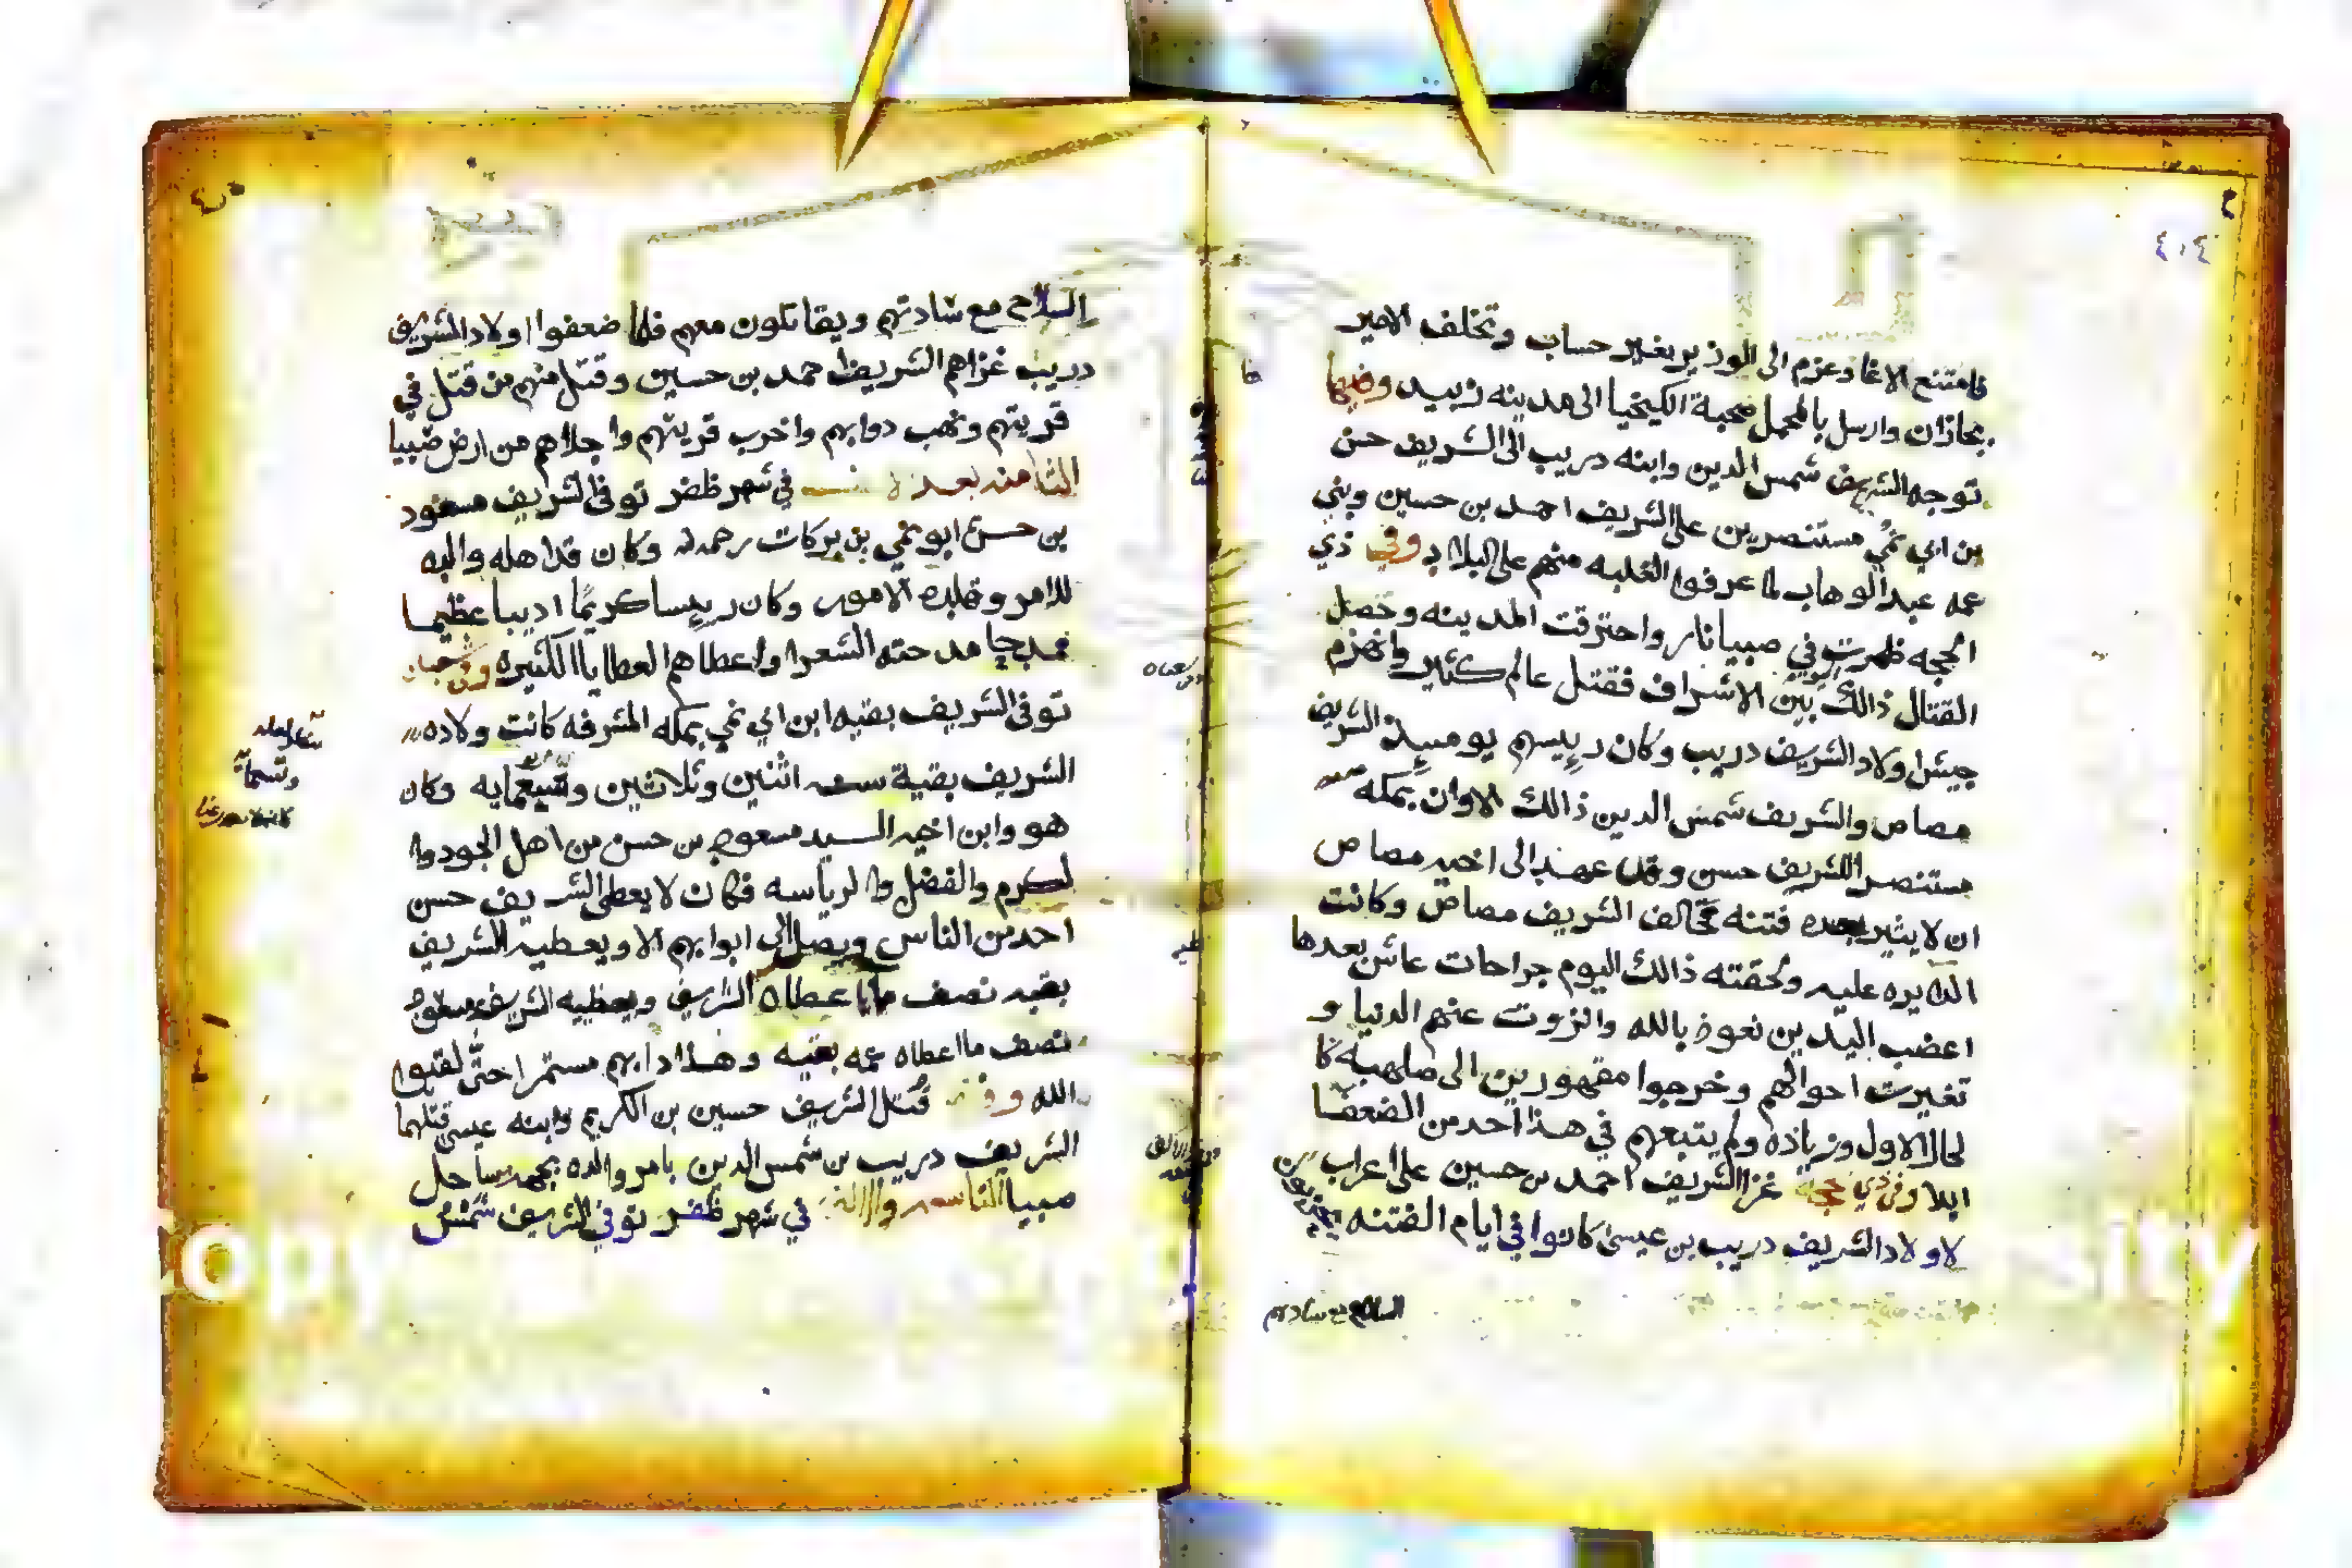 ٤٠٤
فامتنع الاغا وعزم الى الوزير بغير حساب وتخلف الامير
بجازان وارسل بالمحمل صحبة الكيخيا الى مدينه زبيد وفيها
توجه الشريف شمس الدين وابنه دريب الى الشريف حسن
بن ابي نمي مستنصرين على الشريف احمد بن حسين وبني
عمه عبد الوهاب لما عرفوا الغلبه منهم على البلاد وفي ذي
الحجه ظهرت في صبيا نار واحترقت المدينه وحصل
القتال ذالك بين الاشراف فقتل عالم كثير وانهزم
جيش اولاد الشريف دريب وكان رييسهم يومييذ الشريف
مصاص والشريف شمس الدين ذالك الاوان بمكه
مستنصر اللشريف حسن وقد عهد الى اخيه مصاص
ان لا يثير بعده فتنه فخالف الشريف مصاص وكانت
الدايره عليه ولحقته ذالك اليوم جراحات عاش بعدها
اعضب اليدين نعوذ بالله وانزوت عنهم الدنيا و
تغيرت احوالهم وخرجوا مقهورين الى صلهبه كا
لحال الاول وزياده ولم يتبعهم في هذا احد من الضعفا
ابلا وفي ذي حجة غزا الشريف احمد بن حسين على اعراب
لاولاد الشريف دريب بن عيسى كانوا في ايام الفتنه
السلاح مع سادتهم
السلاح مع سادتهم ويقاتلون معهم فلما ضعفوا اولاد الشريف
دريب غزاهم الشريف احمد بن حسين وقتل منهم من قتل في
قريتهم ونهب دوابهم واخرب قريتهم واجلاهم من ارض صبيا
الثامنه بعد في شهر ظفر توفي الشريف مسعود
بن حسن ابو نمي بن بركات رحمه وكان قد اهله والبه
للامر وقلده الامور وكان رييسا كريما اديبا عظيما
مدحته الشعرا واعطاهم العطايا الكثيره وفي
توفي الشريف بقيه ابن ابي نمي بمكه المشرفه كانت ولاده
الشريف بقية سنه اثنين وثلاثين وتسعمايه وكان
هو وابن اخيه السيد مسعود بن حسن من اهل الجود وا
لكرم والفضل والرياسه فكان لا يعطي الشريف حسن
احد من الناس ويصل الى ابوابهم الا ويعطيه الشريف
بقيه نصف ما اعطاه الشريف ويعطيه الشريف مسعود
نصف ما اعطاه عمه بقيه وهذا دابهم مستمرا حتى لقيوا
الله وفي قتل الشريف حسين بن الكريم وابنه عيسى قتلهما
الشريف دريب بن شمس الدين بامر والده بجهه ساحل
صبيا التاسعه والالف في شهر ظفر توفي الشريف شمس